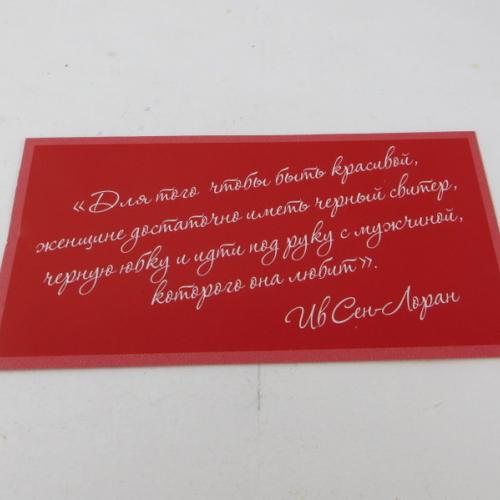 «Для того чтобы быть красивой,
женщине достаточно иметь черный свитер,
черную юбку и идти под руку с мужчиной,
которого она любит».
Ив Сен-Лоран